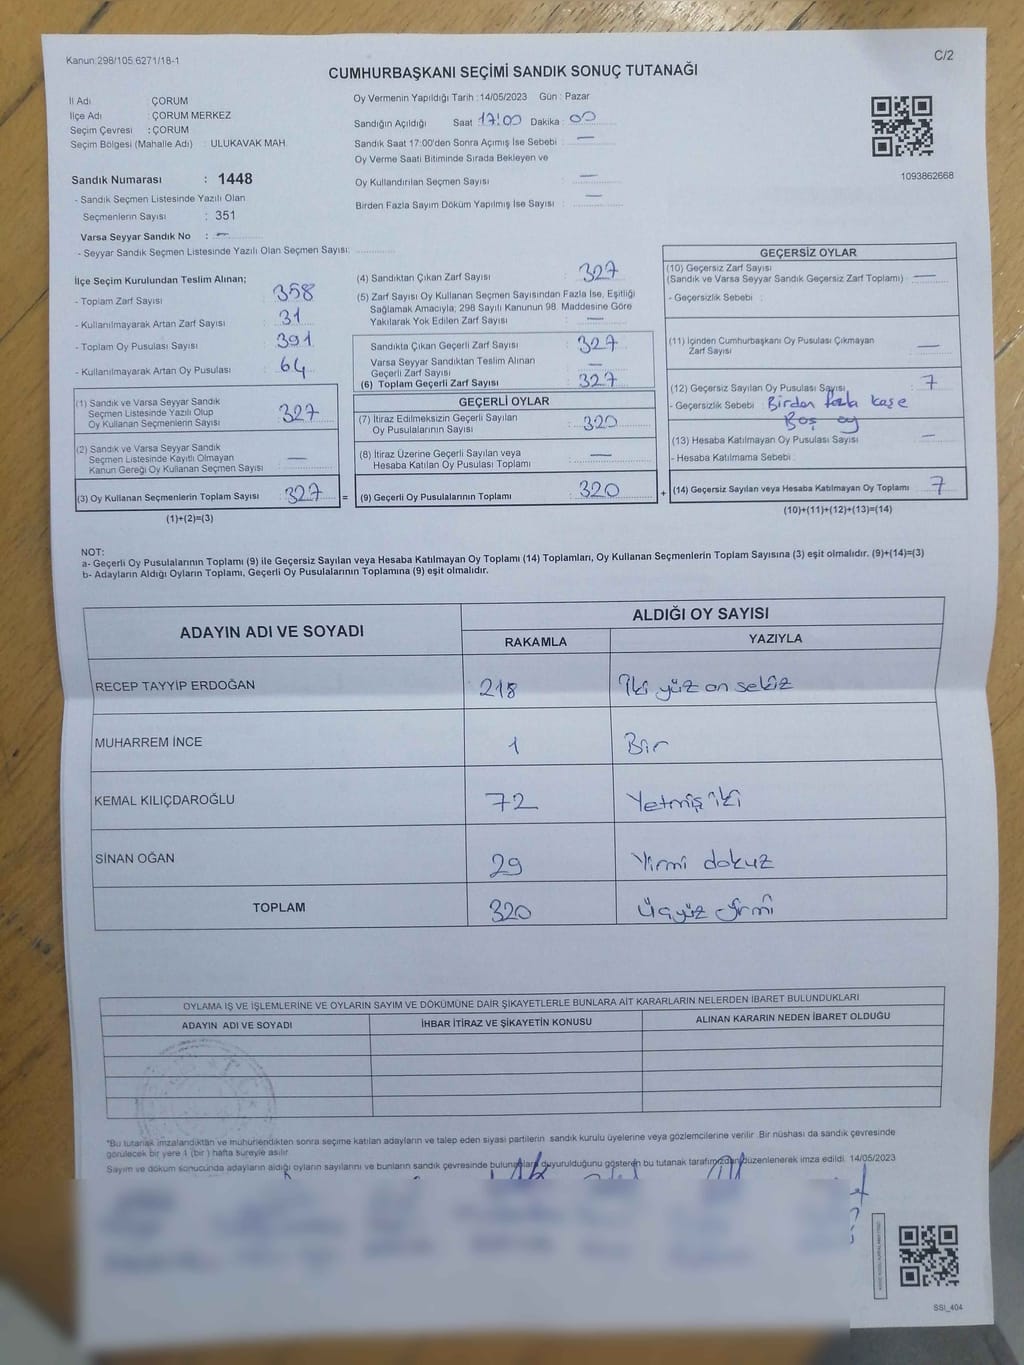 Kanun:298/105,6271/18-1
C/2
CUMHURBAŞKANI SEÇİMİ SANDIK SONUÇ TUTANAĞI
İl Adı ÇORUM
İlçe Adı : ÇORUM MERKEZ
Seçim Çevresi : ÇORUM
Seçim Bölgesi (Mahalle Adı) : ULUKAVAK MAH.
Sandık Numarası : 1448
- Sandık Seçmen Listesinde Yazılı Olan
Seçmenlerin Sayısı : 351
Varsa Seyyar Sandık No : —
- Seyyar Sandık Seçmen Listesinde Yazılı Olan Seçmen Sayısı:
Oy Vermenin Yapıldığı Tarih : 14/05/2023 Gün : Pazar
Sandığın Açıldığı Saat 17:00 Dakika : 00
Sandık Saat 17:00'den Sonra Açımış İse Sebebi : —
Oy Verme Saati Bitiminde Sırada Bekleyen ve
Oy Kullandırılan Seçmen Sayısı : —
Birden Fazla Sayım Döküm Yapılmış İse Sayısı : —
1093862668
İlçe Seçim Kurulundan Teslim Alınan;
- Toplam Zarf Sayısı : 358
- Kullanılmayarak Artan Zarf Sayısı : 31
- Toplam Oy Pusulası Sayısı : 391
- Kullanılmayarak Artan Oy Pusulası : 64
(1) Sandık ve Varsa Seyyar Sandık
Seçmen Listesinde Yazılı Olup
Oy Kullanan Seçmenlerin Sayısı : 327
(2) Sandık ve Varsa Seyyar Sandık
Seçmen Listesinde Kayıtlı Olmayan
Kanun Gereği Oy Kullanan Seçmen Sayısı : —
(3) Oy Kullanan Seçmenlerin Toplam Sayısı : 327 =
(1)+(2)=(3)
(4) Sandıktan Çıkan Zarf Sayısı : 327
(5) Zarf Sayısı Oy Kullanan Seçmen Sayısından Fazla İse, Eşitliği
Sağlamak Amacıyla; 298 Sayılı Kanunun 98. Maddesine Göre
Yakılarak Yok Edilen Zarf Sayısı : —
Sandıkta Çıkan Geçerli Zarf Sayısı : 327
Varsa Seyyar Sandıktan Teslim Alınan
Geçerli Zarf Sayısı : —
(6) Toplam Geçerli Zarf Sayısı : 327
GEÇERLİ OYLAR
(7) İtiraz Edilmeksizin Geçerli Sayılan
Oy Pusulalarının Sayısı : 320
(8) İtiraz Üzerine Geçerli Sayılan veya
Hesaba Katılan Oy Pusulası Toplamı : —
(9) Geçerli Oy Pusulalarının Toplamı : 320 +
GEÇERSİZ OYLAR
(10) Geçersiz Zarf Sayısı
(Sandık ve Varsa Seyyar Sandık Geçersiz Zarf Toplamı) : —
- Geçersizlik Sebebi :
(11) İçinden Cumhurbaşkanı Oy Pusulası Çıkmayan
Zarf Sayısı : —
(12) Geçersiz Sayılan Oy Pusulası Sayısı : 7
- Geçersizlik Sebebi : Birden fazla kaşe
Boş oy
(13) Hesaba Katılmayan Oy Pusulası Sayısı : —
- Hesaba Katılmama Sebebi :
(14) Geçersiz Sayılan veya Hesaba Katılmayan Oy Toplamı : 7
(10)+(11)+(12)+(13)=(14)
NOT:
a- Geçerli Oy Pusulalarının Toplamı (9) ile Geçersiz Sayılan veya Hesaba Katılmayan Oy Toplamı (14) Toplamları, Oy Kullanan Seçmenlerin Toplam Sayısına (3) eşit olmalıdır. (9)+(14)=(3)
b- Adayların Aldığı Oyların Toplamı, Geçerli Oy Pusulalarının Toplamına (9) eşit olmalıdır.
ADAYIN ADI VE SOYADI ALDIĞI OY SAYISI
RAKAMLA YAZIYLA
RECEP TAYYİP ERDOĞAN 218 İki yüz on sekiz
MUHARREM İNCE 1 Bir
KEMAL KILIÇDAROĞLU 72 Yetmiş iki
SİNAN OĞAN 29 Yirmi dokuz
TOPLAM 320 Üçyüz yirmi
OYLAMA İŞ VE İŞLEMLERİNE VE OYLARIN SAYIM VE DÖKÜMÜNE DAİR ŞİKAYETLERLE BUNLARA AİT KARARLARIN NELERDEN İBARET BULUNDUKLARI
ADAYIN ADI VE SOYADI İHBAR İTİRAZ VE ŞİKAYETİN KONUSU ALINAN KARARIN NEDEN İBARET OLDUĞU
*Bu tutanak imzalandıktan ve mühürlendikten sonra seçime katılan adayların ve talep eden siyasi partilerin sandık kurulu üyelerine veya gözlemcilerine verilir. Bir nüshası da sandık çevresinde
görülecek bir yere 1 (bir) hafta süreyle asılır.
Sayım ve döküm sonucunda adayların aldığı oyların sayılarını ve bunların sandık çevresinde bulunanlara duyurulduğunu gösteren bu tutanak tarafımızdan düzenlenerek imza edildi. 14/05/2023
SSI_404